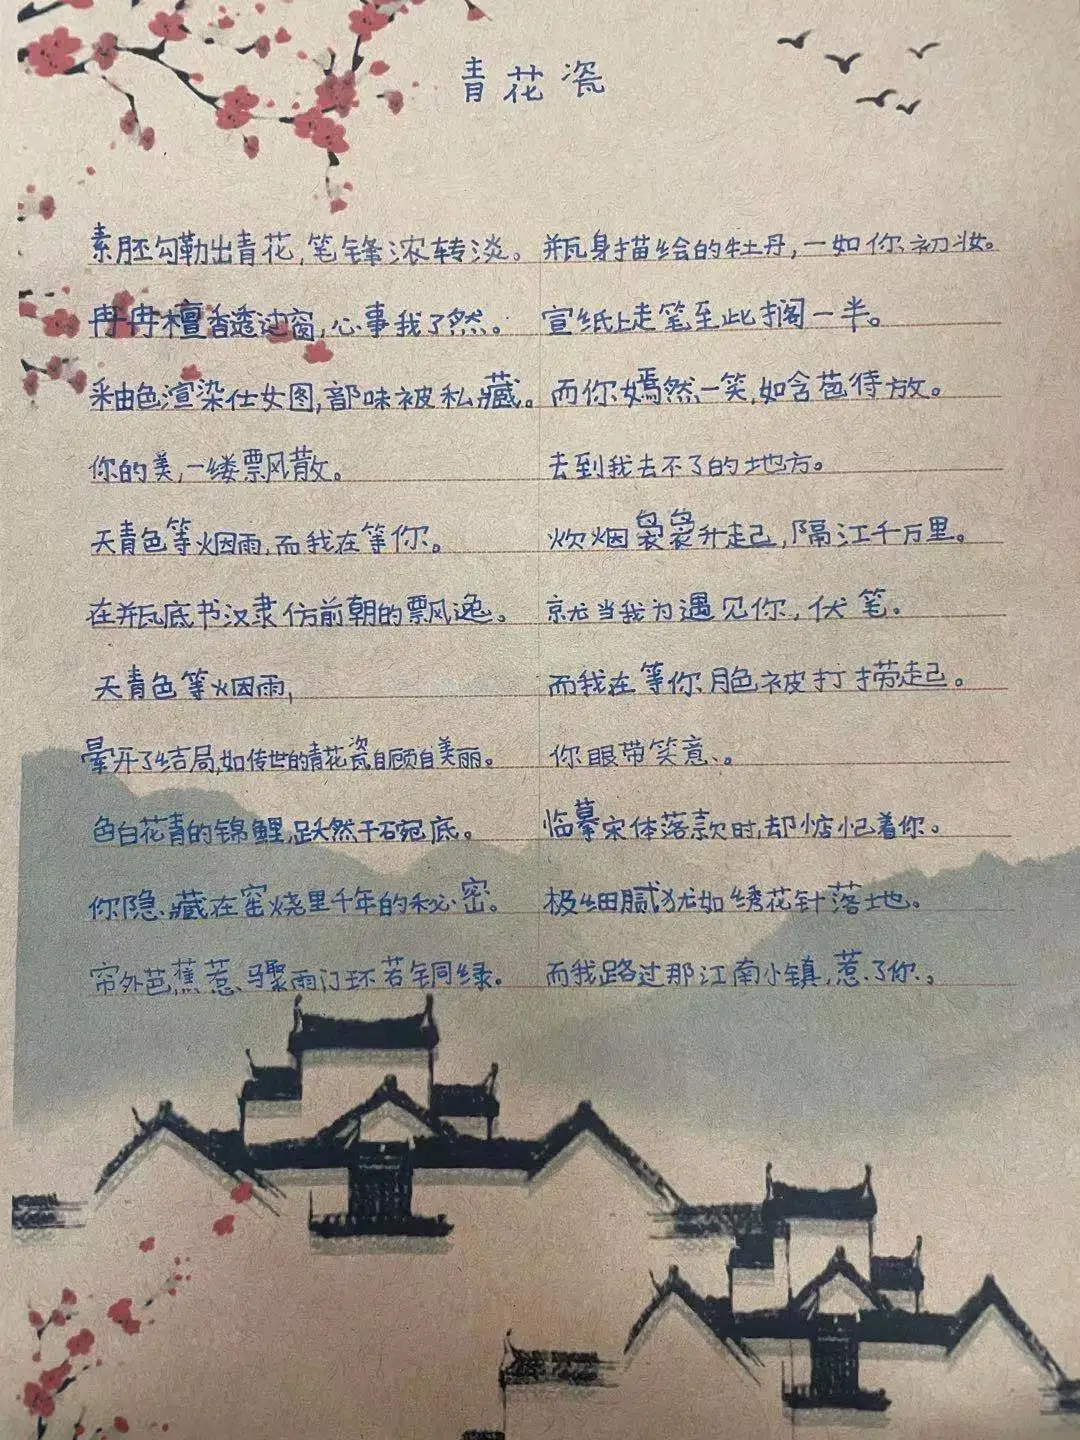 青花瓷
素胚勾勒出青花，笔锋浓转淡。 瓶身描绘的牡丹，一如你初妆。
冉冉檀香透过窗，心事我了然。 宣纸上走笔至此搁一半。
釉色渲染仕女图，韵味被私藏。 而你嫣然一笑，如含苞待放。
你的美，一缕飘风散。 去到我去不了的地方。
天青色等烟雨，而我在等你。 炊烟袅袅升起，隔江千万里。
在瓶底书汉隶仿前朝的飘逸。 就当我为遇见你，伏笔。
天青色等烟雨， 而我在等你月色被打捞起。
晕开了结局，如传世的青花瓷自顾自美丽。 你眼带笑意。
色白花青的锦鲤，跃然于碗底。 临摹宋体落款时，却惦记着你。
你隐藏在窑烧里千年的秘密。 极细腻犹如绣花针落地。
帘外芭蕉惹骤雨门环惹铜绿。 而我路过那江南小镇，惹了你，